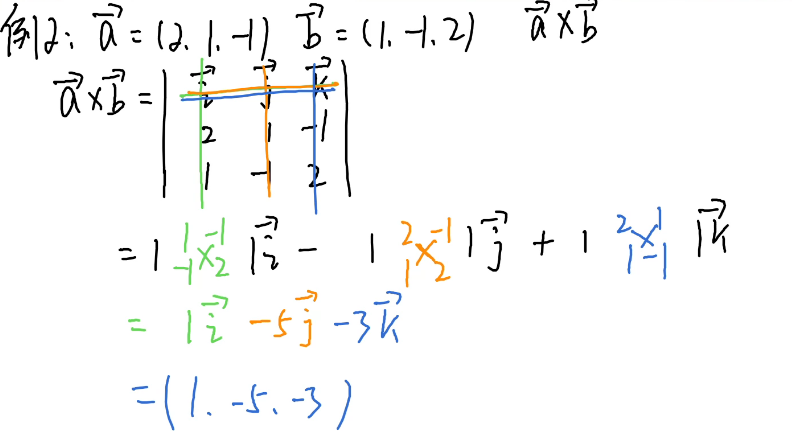 例2: a⃗ = (2, 1, -1) b⃗ = (1, -1, 2) a⃗×b⃗
a⃗×b⃗ = | i⃗ j⃗ k⃗ |
| 2 1 -1 |
| 1 -1 2 |
= | 1 -1 | i⃗ - | 2 -1 | j⃗ + | 2 1 | k⃗
| -1 2 | | 1 2 | | 1 -1 |
= 1i⃗ -5j⃗ -3k⃗
= (1, -5, -3)